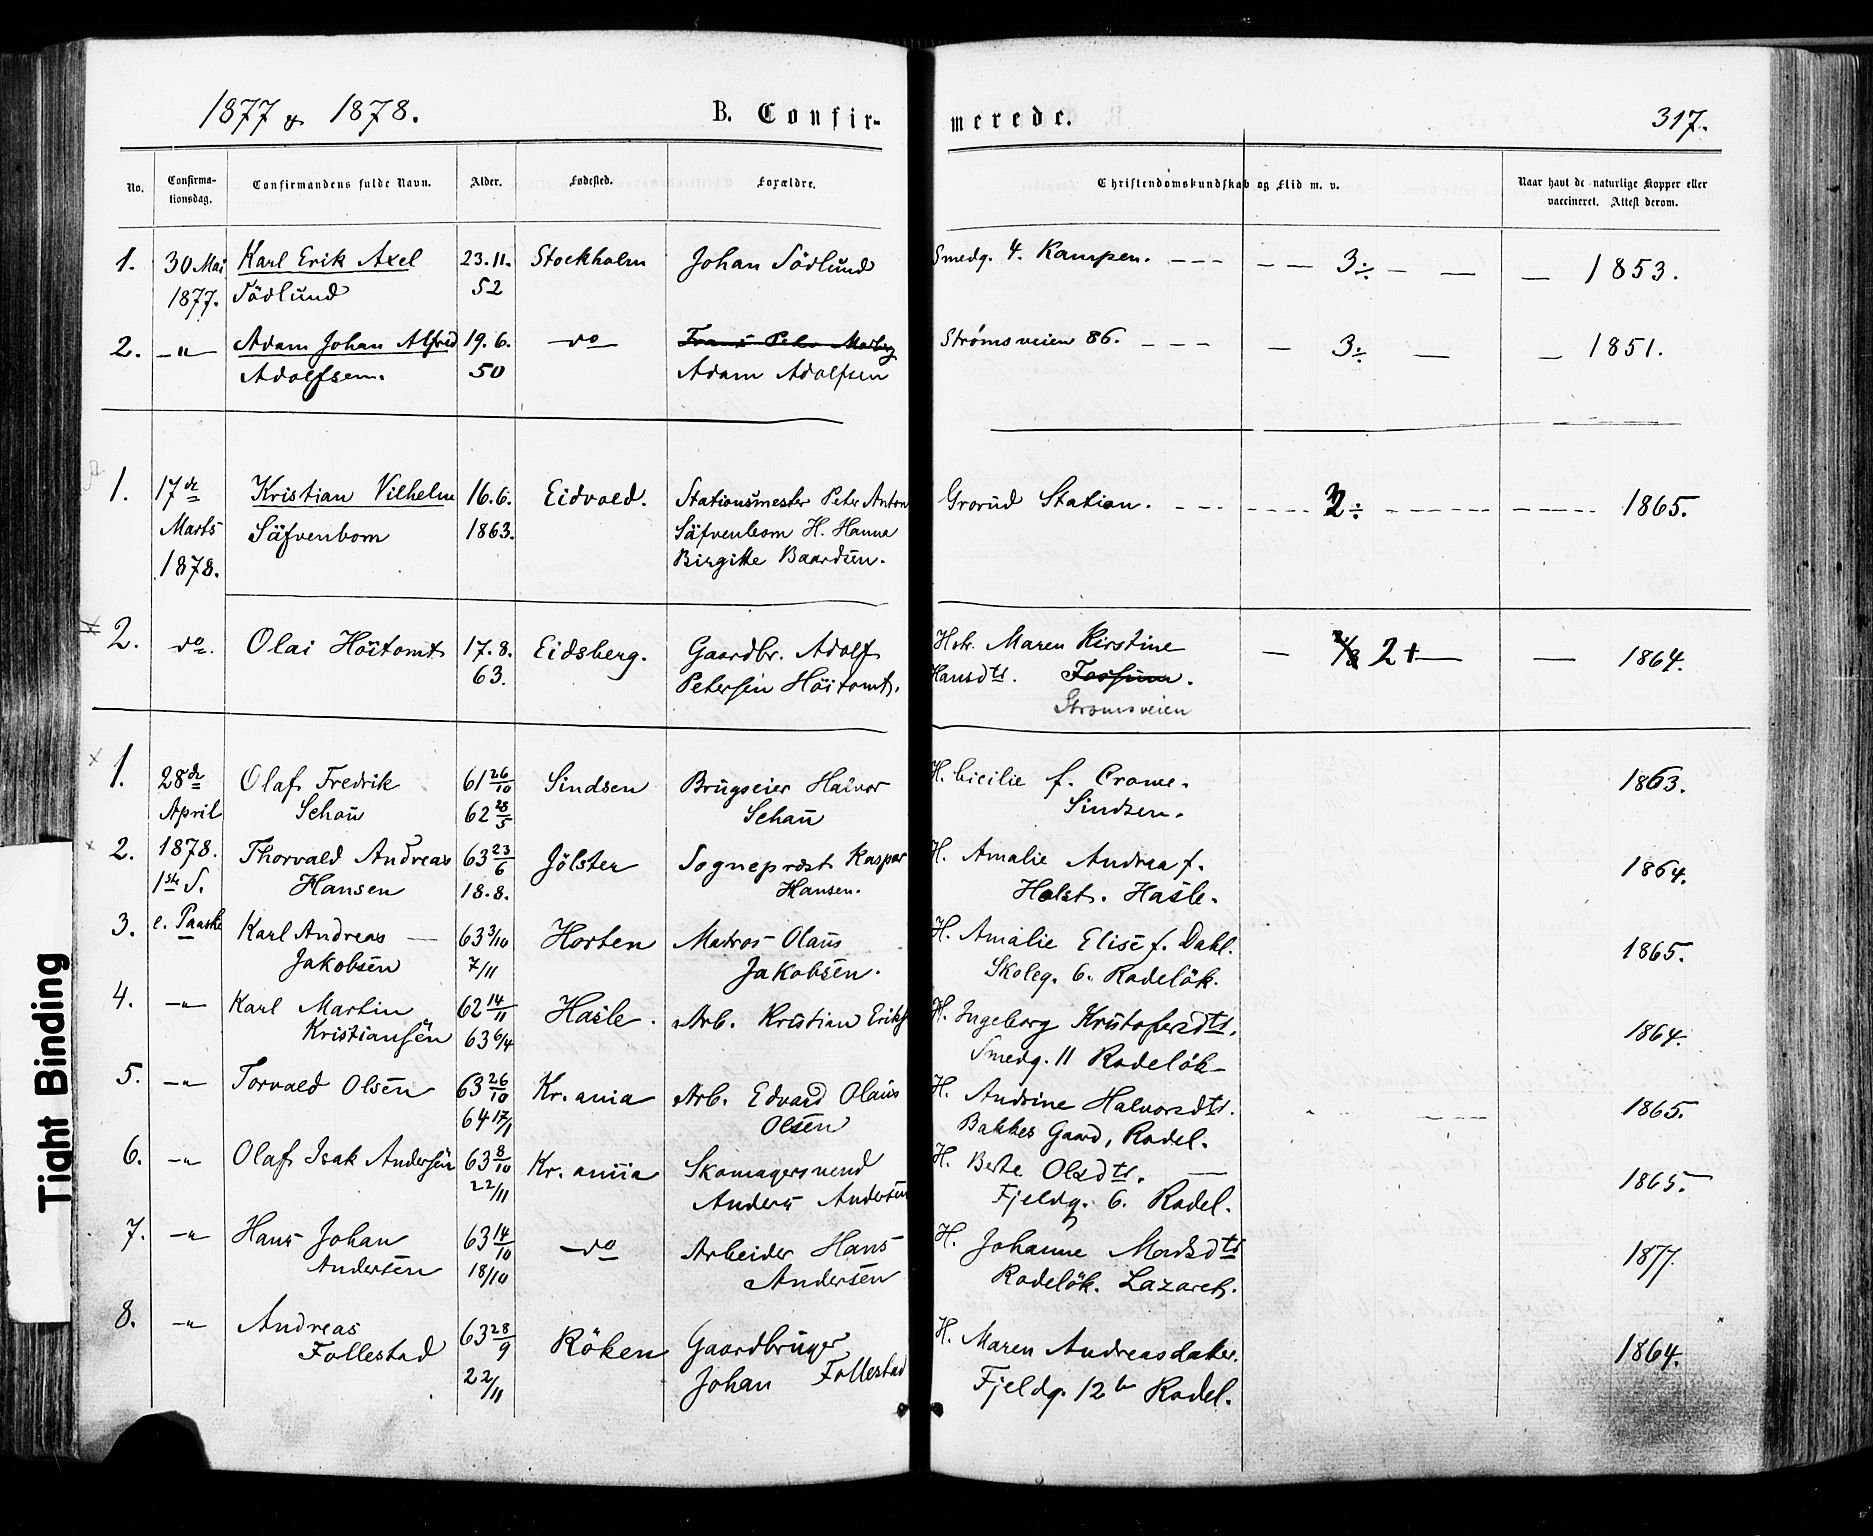 1877 & 1878.
B. Confir-
merede.
317.
No.
Confirma-
tionsdag.
Confirmandens fulde Navn.
Alder.
Fødested.
Forældre.
Christendomskundskab og Flid m. v.
Naar havt de naturlige Kopper eller
vaccineret. Attest derom.
1. 30 Mai Karl Erik Axel 23.11. Stockholm Johan Södlund Smedg. 4. Kampen. - - - - - 3÷ - - - 1853.
1877. Södlund 52
2. -"- Adam Johan Alfred 19.6. -do- Strømsveien 86. - - - - 3÷ - - 1851.
Adolfsen. 50 Adam Adolfsen
1. 17de Kristian Vilhelm 16.6. Eidvold. Stationsmester Peter Anton Grorud Station. 2÷ 1865.
Marts Säfvenbom 1863. Säfvenbom H. Hanna
1878. Birgitte Baardsen.
2. do. Olai Höitomt 17.8. Eidsberg. Gaardbr. Adolf Hstr. Maren Kirstine - 2+ - - 1864.
63. Petersen Höitomt. Hansdtr. Fossum.
Strömsveien
1. 28de Olaf Fredrik 61 26/10 Sindsen Brugseier Halvor H. Cicilie f. Crowe. 1863.
April Schou 62 28/5 Schou Sindsen.
2. 1878. Thorvald Andreas 63 23/6 Jölster Sognepræst Kaspar H. Amalie Andrea f. 1864.
1ste S. Hansen 18.8. Hansen. Holst. Hasle.
3. e. Paaske Karl Andreas - 63 3/10 Horten Matros Olaus H. Amalie Elise f. Dahl. 1865.
Jakobsen 7/11 Jakobsen. Skoleg. 6. Rodelök.
4. -"- Karl Martin 62 14/11 Hasle. Arb. Kristian Eriks H. Ingeborg Kristofersdtr. 1864.
Kristiansen 63 6/4 Smedg. 11 Rodelök-
5. -"- Torvald Olsen 63 26/10 Kr.ania Arb. Edvard Olaus H. Andrine Halvorsdtr. 1865.
64 17/1 Olsen Bakkes Gaard, Rodel.
6. -"- Olaf Isak Andersen 63 8/10 Kr.ania Skomagersvend H. Berte Olsdtr. 1865.
22/11 Anders Andersen Fjeldg. 6. Rodel.
7. -"- Hans Johan 63 14/10 -do- Arbeider Hans H. Johanne Madsdtr 1877.
Andersen 18/10 Andersen Rodelök. Lazareth.
8. -"- Andreas 63 28/9 Röken Gaardbruger H. Maren Andreasdatter. 1864.
Follestad 22/11 Johan Follestad Fjeldg. 12b Rodel.
Tight Binding